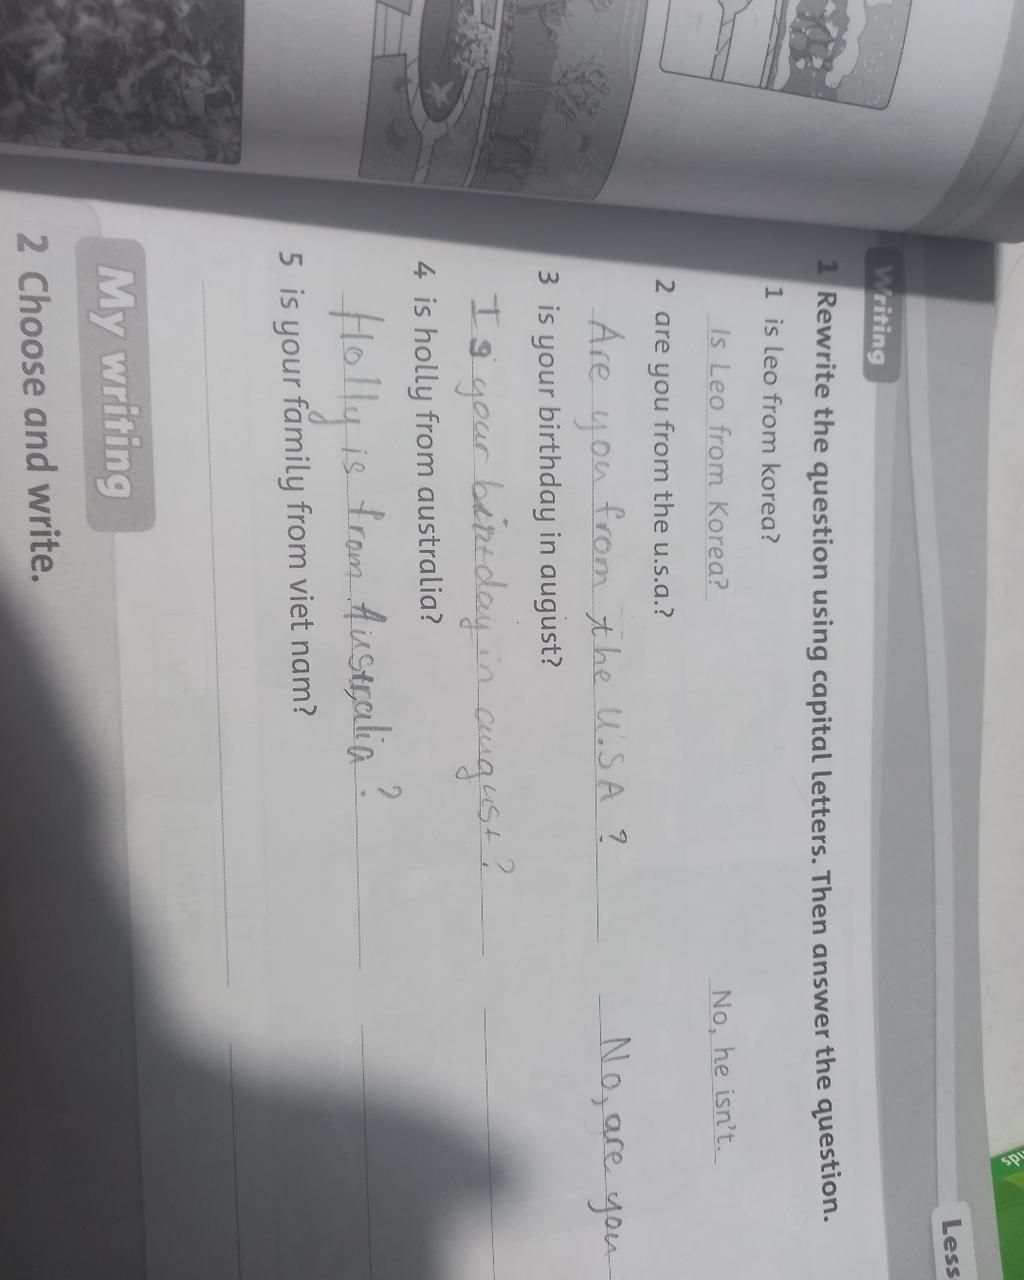 Less
Writing
1 Rewrite the question using capital letters. Then answer the question.
1 is leo from korea?
Is Leo from Korea? No, he isn't.
2 are you from the u.s.a.?
Are you from the U.SA? No, are you
3 is your birthday in august?
Is your birtday in august?
4 is holly from australia?
Holly is from Australia?
5 is your family from viet nam?
My writing
2 Choose and write.